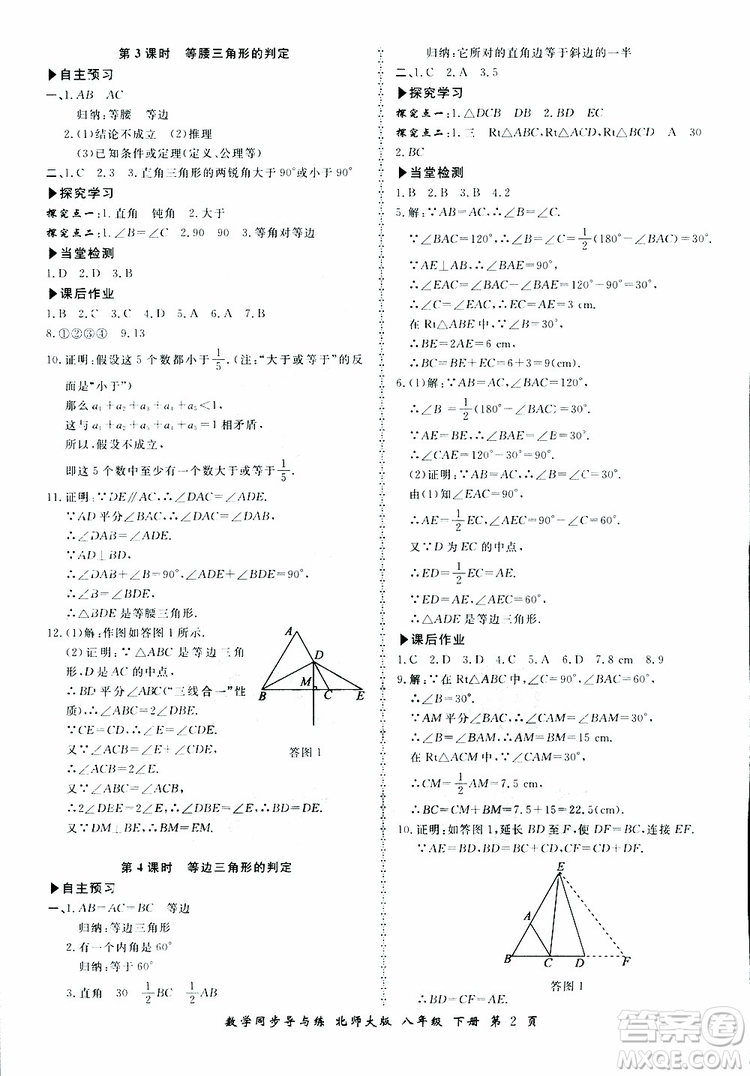 第3课时 等腰三角形的判定
▶自主预习
一、1.AB AC
归纳:等腰 等边
2.(1)结论不成立 (2)推理
(3)已知条件或定理(定义、公理等)
二、1.C 2.3 3.直角三角形的两锐角大于90°或小于90°
▶探究学习
探究点一:1.直角 钝角 2.大于
探究点二:1.∠B=∠C 2.90 90 3.等角对等边
▶当堂检测
1.D 2.D 3.B
▶课后作业
1.B 2.C 3.D 4.C 5.B 6.C 7.B
8.①②③④ 9.13
10.证明:假设这5个数都小于1/5.(注:“大于或等于”的反
面是“小于”)
那么a₁+a₂+a₃+a₄+a₅<1,
这与a₁+a₂+a₃+a₄+a₅=1相矛盾,
所以,假设不成立,
即这5个数中至少有一个数大于或等于1/5.
11.证明:∵DE∥AC,∴∠DAC=∠ADE.
∵AD平分∠BAC,∴∠DAC=∠DAB.
∴∠DAB=∠ADE.
∵AD⊥BD,
∴∠DAB+∠B=90°,∠ADE+∠BDE=90°.
∴∠B=∠BDE.
∴△BDE是等腰三角形.
12.(1)解:作图如答图1所示.
(2)证明:∵△ABC是等边三角
形,D是AC的中点,
∴BD平分∠ABC(“三线合一”性
质).
∴∠ABC=2∠DBE.
∵CE=CD,∴∠CED=∠CDE.
又∵∠ACB=∠CED+∠CDE,
∴∠ACB=2∠E.
又∵∠ABC=∠ACB,
∴2∠DBE=2∠E.∴∠DBE=∠E.∴BD=DE.
又∵DM⊥BE,∴BM=EM.
A
D
M
B
C
E
答图1
第4课时 等边三角形的判定
▶自主预习
一、1.AB=AC=BC 等边
归纳:等边三角形
2.有一个内角是60°
归纳:等于60°
3.直角 30 1/2 BC 1/2 BC
归纳:它所对的直角边等于斜边的一半
二、1.C 2.A 3.5
▶探究学习
探究点一:1.△DCB DB 2.BD EC
探究点二:1.三 Rt△ABC Rt△BCD A 30
2.BC
▶当堂检测
1.B 2.B 3.B 4.2
5.解:∵AB=AC,∴∠B=∠C.
∵∠BAC=120°,∴∠C=1/2(180°-∠BAC)=30°.
∵AE⊥AB,∴∠BAE=90°.
∴∠CAE=120°-90°=30°.
∴∠CAE=∠C.∴AE=CE=3 cm.
在Rt△ABE中,∵∠B=30°,
∴BE=2AE=6 cm.
∴BC=BE+EC=6+3=9(cm).
6.(1)解:∵AB=AC,∠BAC=120°,
∴∠B=1/2(180°-∠BAC)=30°.
又∵AE⊥BC,∴∠AEB=90°.
∴∠BAE=90°-∠B=60°.
∴∠EAC=120°-60°=60°.
(2)证明:∵AB=AC,AE⊥BC,
由(1)知∠C=30°,
∴AE=1/2EC,∠AEC=60°.
又∵D为EC的中点,
∴ED=1/2EC=AE.
∴△AED是等边三角形.
▶课后作业
1.C 2.C 3.D 4.D 5.D 6.D 7.8 cm 8.9
9.解:∵在Rt△ABC中,∠C=90°,∠BAC=60°,
∴∠B=30°.
∵AM平分∠BAC,∴∠CAM=∠BAM=30°.
∴∠B=∠BAM.∴AM=BM=15 cm.
在Rt△ACM中,∵∠CAM=30°,
∴CM=1/2AM=7.5 cm.
∴BC=CM+BM=7.5+15=22.5(cm).
10.证明:如答图1,延长BD至F,使DF=BC,连接EF.
∵EC=ED,∴∠ECD=∠EDC.
∴∠ECB=∠EDF.
又∵BC=DF,
E
A
B
C
D
F
答图1
数学同步导与练 北师大版 八年级 下册 第2页
答案
MXQE.COM